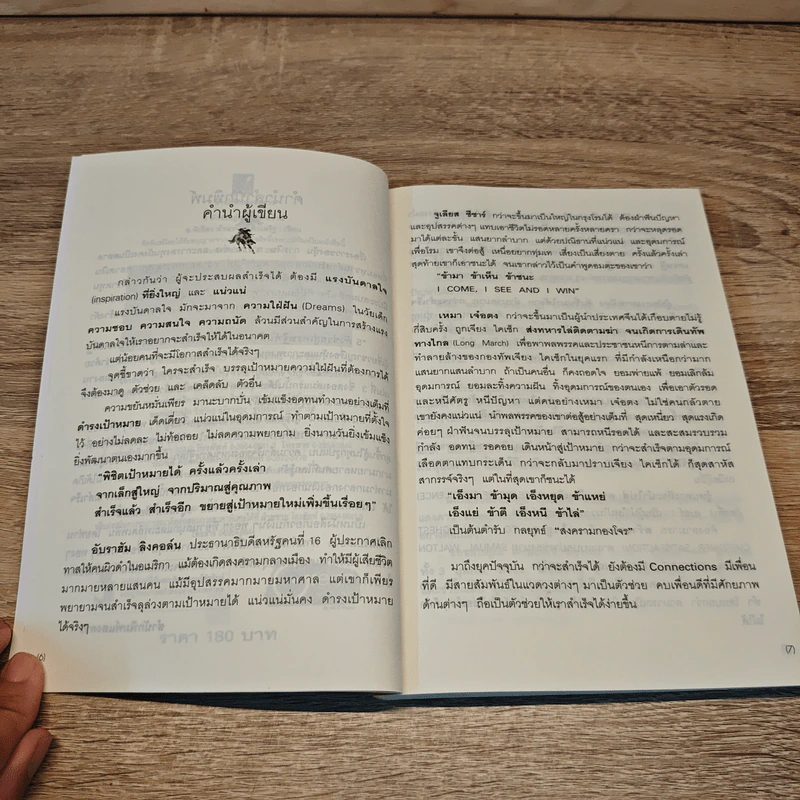 คำนำผู้เขียน
กล่าวกันว่า ผู้จะประสบผลสำเร็จได้ ต้องมี แรงบันดาลใจ
(inspiration) ที่ยิ่งใหญ่ และ แน่วแน่
แรงบันดาลใจ มักจะมาจาก ความใฝ่ฝัน (Dreams) ในวัยเด็ก
ความชอบ ความสนใจ ความถนัด ล้วนมีส่วนสำคัญในการสร้างแรง
บันดาลใจให้เราอยากจะสำเร็จให้ได้ในอนาคต
แต่น้อยคนที่จะมีโอกาสสำเร็จได้จริงๆ
จุดชี้ขาดว่า ใครจะสำเร็จ บรรลุเป้าหมายความใฝ่ฝันที่ต้องการได้
จึงต้องมาดู ตัวช่วย และ เคล็ดลับ ตัวอื่น
ความขยันหมั่นเพียร มานะบากบั่น เข้มแข็งอดทนทำงานอย่างเต็มที่
ดำรงเป้าหมาย เด็ดเดี่ยว แน่วแน่ในอุดมการณ์ ทำตามเป้าหมายที่ตั้งใจ
ไว้ อย่างไม่ลดละ ไม่ท้อถอย ไม่ลดความพยายาม ยิ่งนานวันยิ่งเข้มแข็ง
ยิ่งพัฒนาตนเองมากขึ้น
"พิชิตเป้าหมายได้ ครั้งแล้วครั้งเล่า
จากเล็กสู่ใหญ่ จากปริมาณสู่คุณภาพ
สำเร็จแล้ว สำเร็จอีก ขยายสู่เป้าหมายใหม่เพิ่มขึ้นเรื่อยๆ"
อับราฮัม ลิงคอล์น ประธานาธิบดีสหรัฐคนที่ 16 ผู้ประกาศเลิก
ทาสให้คนผิวดำในอเมริกา แม้ต้องเกิดสงครามกลางเมือง ทำให้มีผู้เสียชีวิต
มากมายหลายแสนคน แม้มีอุปสรรคมากมายมหาศาล แต่เขาก็เพียร
พยายามจนสำเร็จลุล่วงตามเป้าหมายได้ แน่วแน่มั่นคง ดำรงเป้าหมาย
ได้จริงๆ
ราคา 180 บาท
(6)
จูเลียส ซีซาร์ กว่าจะขึ้นมาเป็นใหญ่ในกรุงโรมได้ ต้องฝ่าฟันปัญหา
และอุปสรรคต่างๆ แทบเอาชีวิตไม่รอดหลายครั้งหลายครา กว่าจะหลุดรอด
มาได้แต่ละขั้น แสนยากลำบาก แต่ด้วยปณิธานที่แน่วแน่ และอุดมการณ์
เพื่อโรม เขาจึงต่อสู้ เหนื่อยยากทุ่มเท เสี่ยงเป็นเสี่ยงตาย ครั้งแล้วครั้งเล่า
สุดท้ายเขาก็เอาชนะได้ จนเขากล่าวไว้เป็นคำพูดอมตะของเขาว่า
"ข้ามา ข้าเห็น ข้าชนะ
I COME, I SEE AND I WIN"
เหมา เจ๋อตง กว่าจะขึ้นมาเป็นผู้นำประเทศจีนได้เกือบตายไม่รู้
กี่สิบครั้ง ถูกเจียง ไคเช็ก ส่งทหารไล่ติดตามฆ่า จนเกิดการเดินทัพ
ทางไกล (Long March) เพื่อพาพลพรรคและประชาชนหนีการตามล่าและ
ทำลายล้างของกองทัพเจียง ไคเช็กในยุคแรก ที่มีกำลังเหนือกว่ามาก
แสนยากแสนลำบาก ถ้าเป็นคนอื่น ก็คงถอดใจ ยอมพ่ายแพ้ ยอมเลิกล้ม
อุดมการณ์ ยอมละทิ้งความฝัน ทิ้งอุดมการณ์ของตนเอง เพื่อเอาตัวรอด
และหนีศัตรู หนีปัญหา แต่คนอย่างเหมา เจ๋อตง ไม่ใช่คนกลัวตาย
เขายังคงแน่วแน่ นำพลพรรคของเขาต่อสู้อย่างเต็มที่ สุดเหนี่ยว สุดแรงเกิด
ค่อยๆ ฝ่าฟันจนบรรลุเป้าหมาย สามารถหนีรอดได้ และสะสมรวบรวม
กำลัง อดทน รอคอย เดินหน้าสู่เป้าหมาย กว่าจะสำเร็จตามอุดมการณ์
เลือดตาแทบกระเด็น กว่าจะกลับมาปราบเจียง ไคเช็กได้ ก็สุดสาหัส
สากรรจ์จริงๆ แต่ในที่สุดเขาก็ชนะได้
"เอ็งมา ข้ามุด เอ็งหยุด ข้าแหย่
เอ็งแย่ ข้าตี เอ็งหนี ข้าไล่"
เป็นต้นตำรับ กลยุทธ์ "สงครามกองโจร"
มาถึงยุคปัจจุบัน กว่าจะสำเร็จได้ ยังต้องมี Connections มีเพื่อน
ที่ดี มีสายสัมพันธ์ในแวดวงต่างๆ มาเป็นตัวช่วย คบเพื่อนดีที่มีศักยภาพ
ด้านต่างๆ ถือเป็นตัวช่วยให้เราสำเร็จได้ง่ายขึ้น
(7)